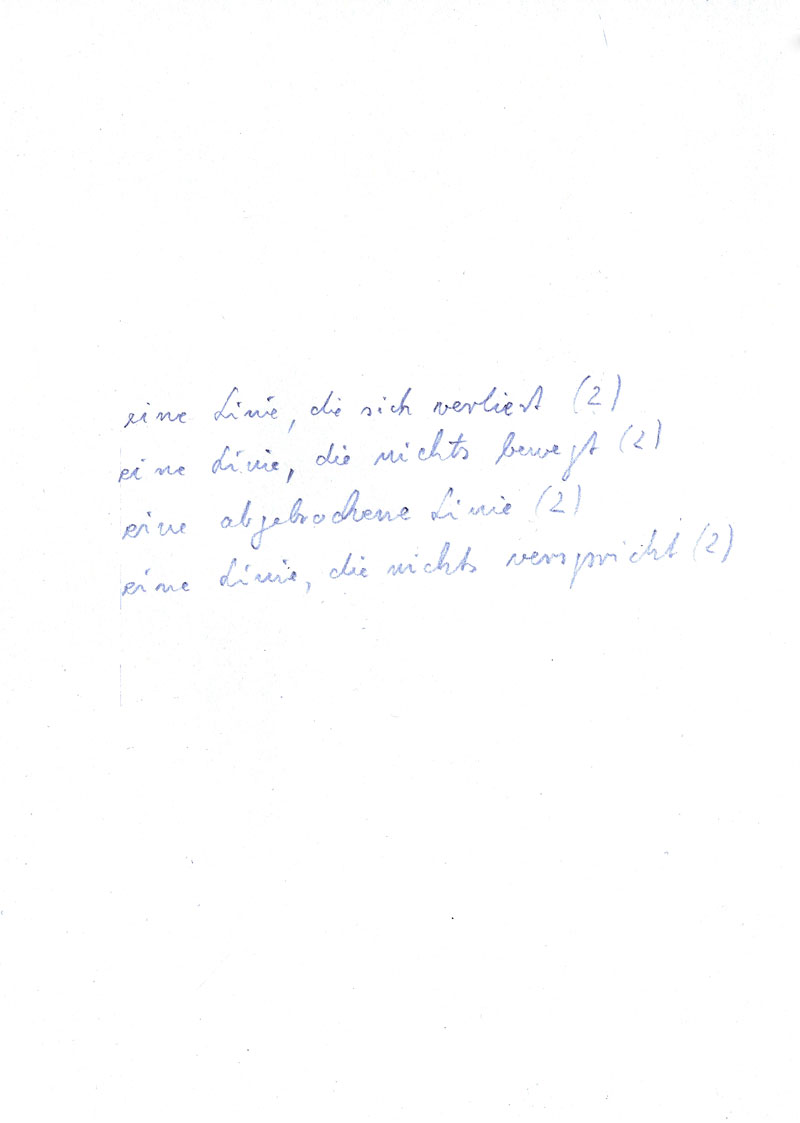 eine Linie, die sich verliert (2)
eine Linie, die nichts bewegt (2)
eine abgebrochene Linie (2)
eine Linie, die nichts verspricht (2)